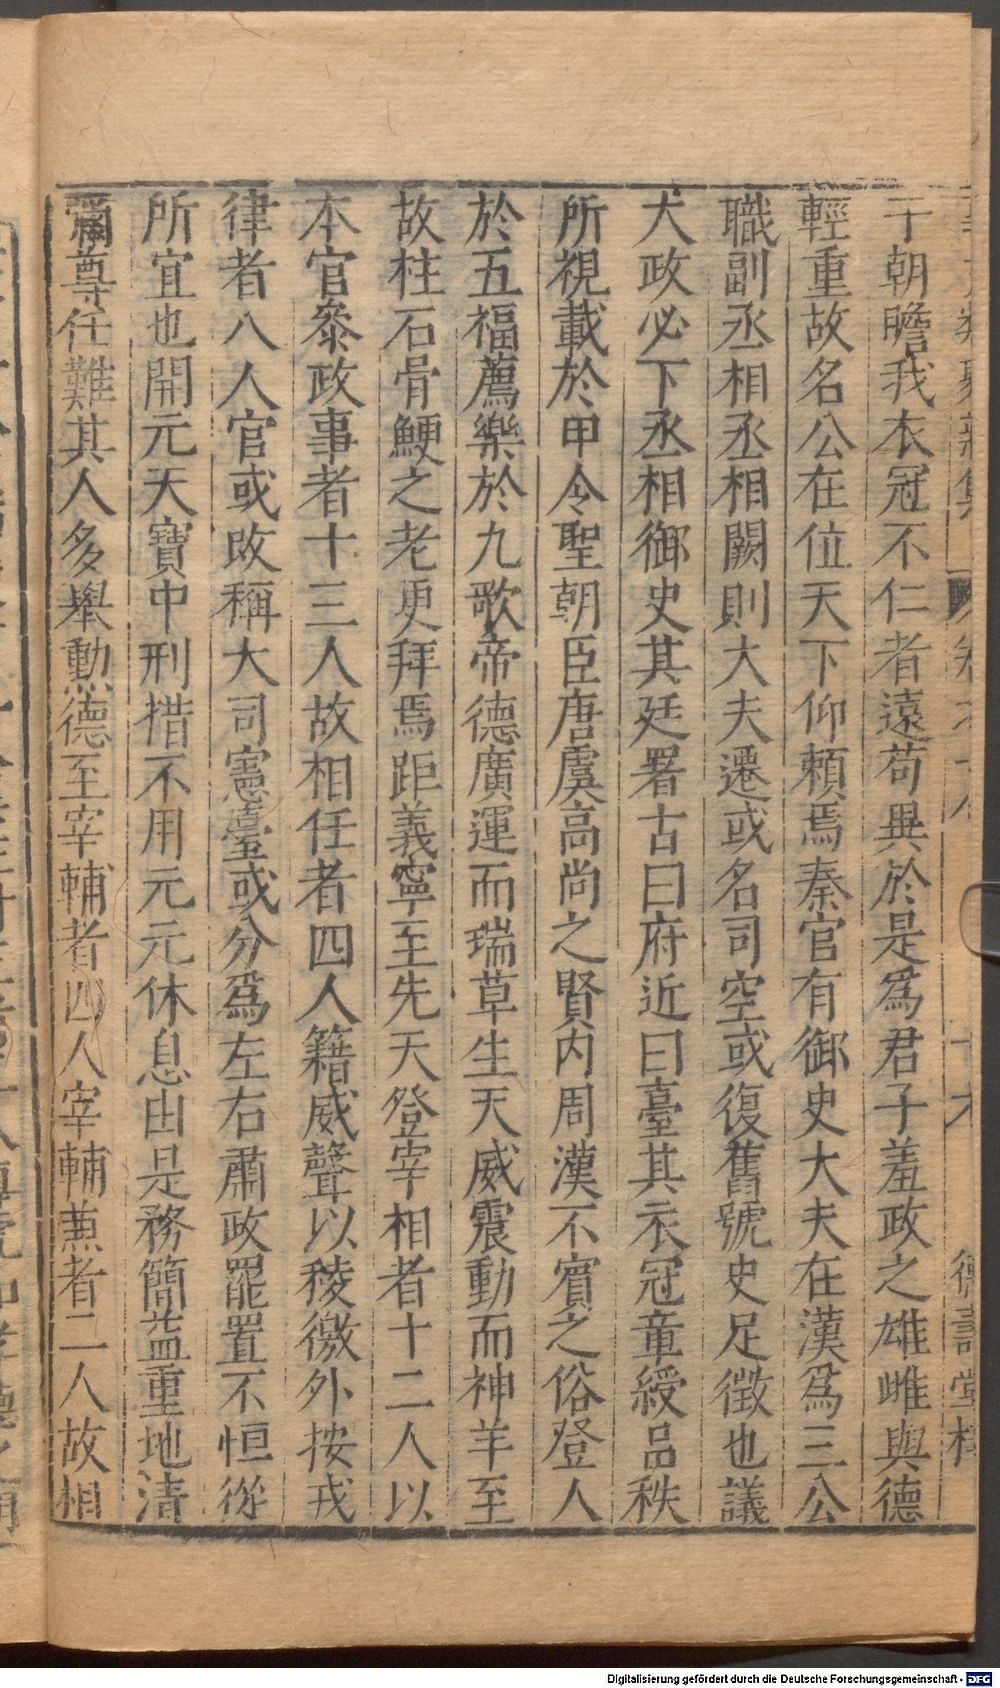 于朝瞻我衣冠不仁者遠苟異於是爲君子羞政之雄雌與德
輕重故名公在位天下仰賴焉秦官有御史大夫在漢爲三公
職副丞相丞相闕則大夫遷或名司空或復舊號史足徵也議
大政必下丞相御史其廷署古曰府近曰臺其衣冠章綬品秩
所視載於甲令聖朝臣唐虞高尚之賢内周漢不賓之俗登人
於五福薦樂於九歌帝德廣運而瑞草生天威震動而神羊至
故柱石骨鯁之老更拜焉距義寧至先天登宰相者十二人以
本官叅政事者十三人故相任者四人籍威聲以稜徼外按戎
律者八人官或改稱大司憲臺或分爲左右肅政罷置不恒從
所宜也開元天寶中刑措不用元元休息由是務簡益重地清
彌尊任難其人多舉勳德至宰輔者四人宰輔兼者二人故相
德壽堂梓
Digitalisierung gefördert durch die Deutsche Forschungsgemeinschaft - DFG